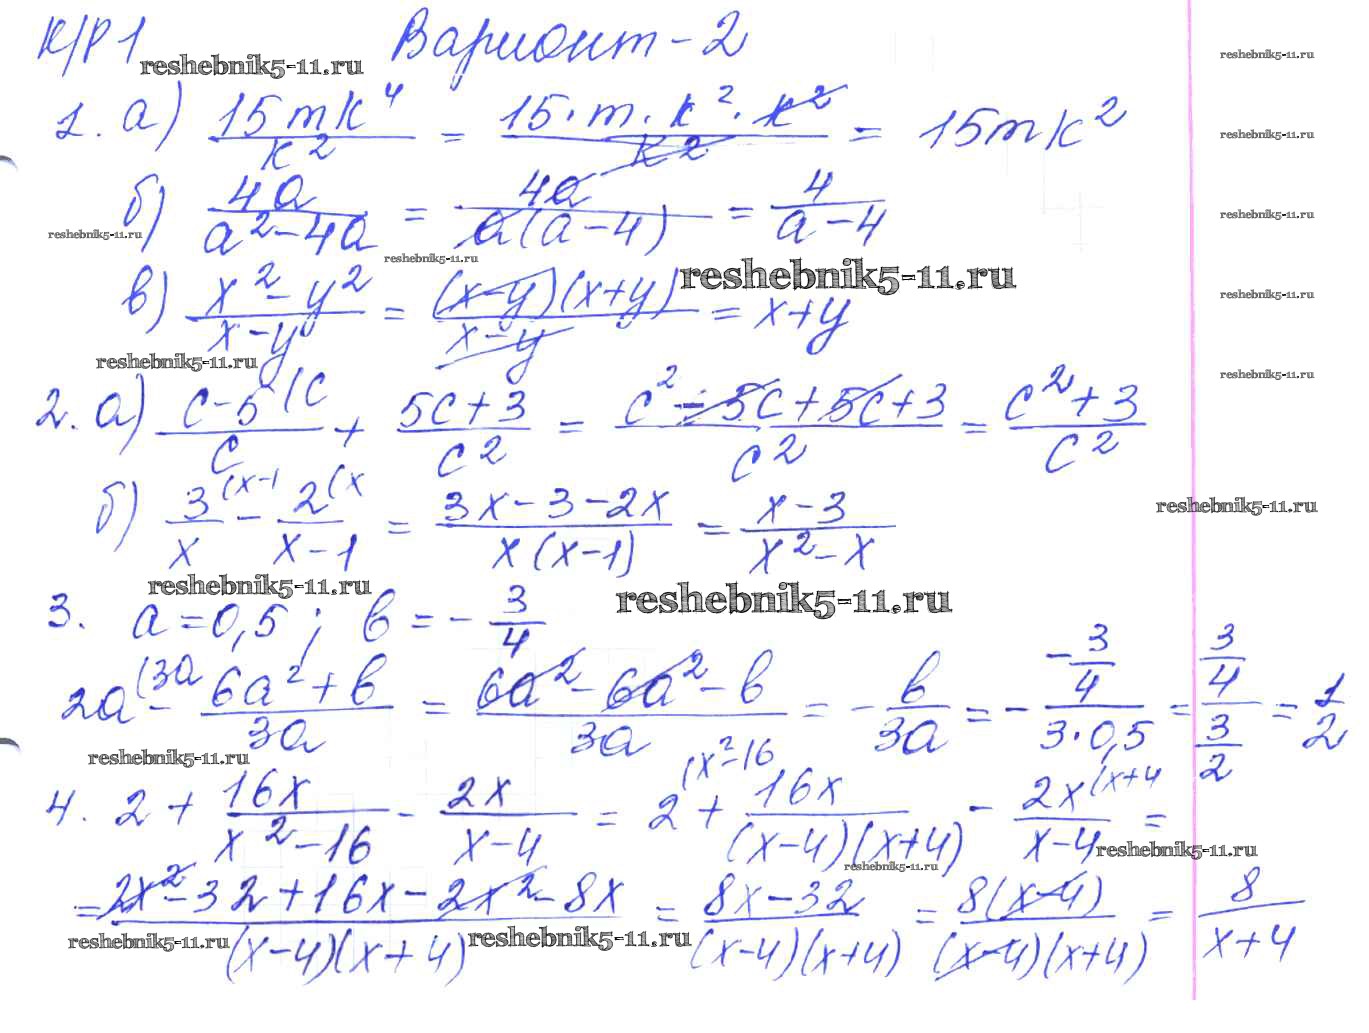 К/Р 1 Вариант - 2
reshebnik5-11.ru reshebnik5-11.ru
1. а) 15mk⁴/k² = 15·m·k²·k²/k² = 15mk² reshebnik5-11.ru
б) 4a/(a²-4a) = 4a/(a(a-4)) = 4/(a-4) reshebnik5-11.ru
reshebnik5-11.ru reshebnik5-11.ru
reshebnik5-11.ru reshebnik5-11.ru
в) (x²-y²)/(x-y) = (x-y)(x+y)/(x-y) = x+y
reshebnik5-11.ru reshebnik5-11.ru
2. а) (c-5)/c (c + (5c+3)/c² = (c²-5c+5c+3)/c² = (c²+3)/c²
б) 3/x (x-1 - 2/(x-1) (x = (3x-3-2x)/(x(x-1)) = (x-3)/(x²-x) reshebnik5-11.ru
reshebnik5-11.ru reshebnik5-11.ru
3. a=0,5; b=-3/4
2a (3a - (6a²+b)/3a = (6a²-6a²-b)/3a = -b/3a = - (-3/4)/(3·0,5) = (3/4)/(3/2) = 1/2
reshebnik5-11.ru
4. 2 + 16x/(x²-16) - 2x/(x-4) = 2 (x²-16 + 16x/((x-4)(x+4)) - 2x/(x-4) (x+4 =
reshebnik5-11.ru reshebnik5-11.ru
= (2x²-32+16x-2x²-8x)/((x-4)(x+4)) = (8x-32)/((x-4)(x+4)) = 8(x-4)/((x-4)(x+4)) = 8/(x+4)
reshebnik5-11.ru reshebnik5-11.ru